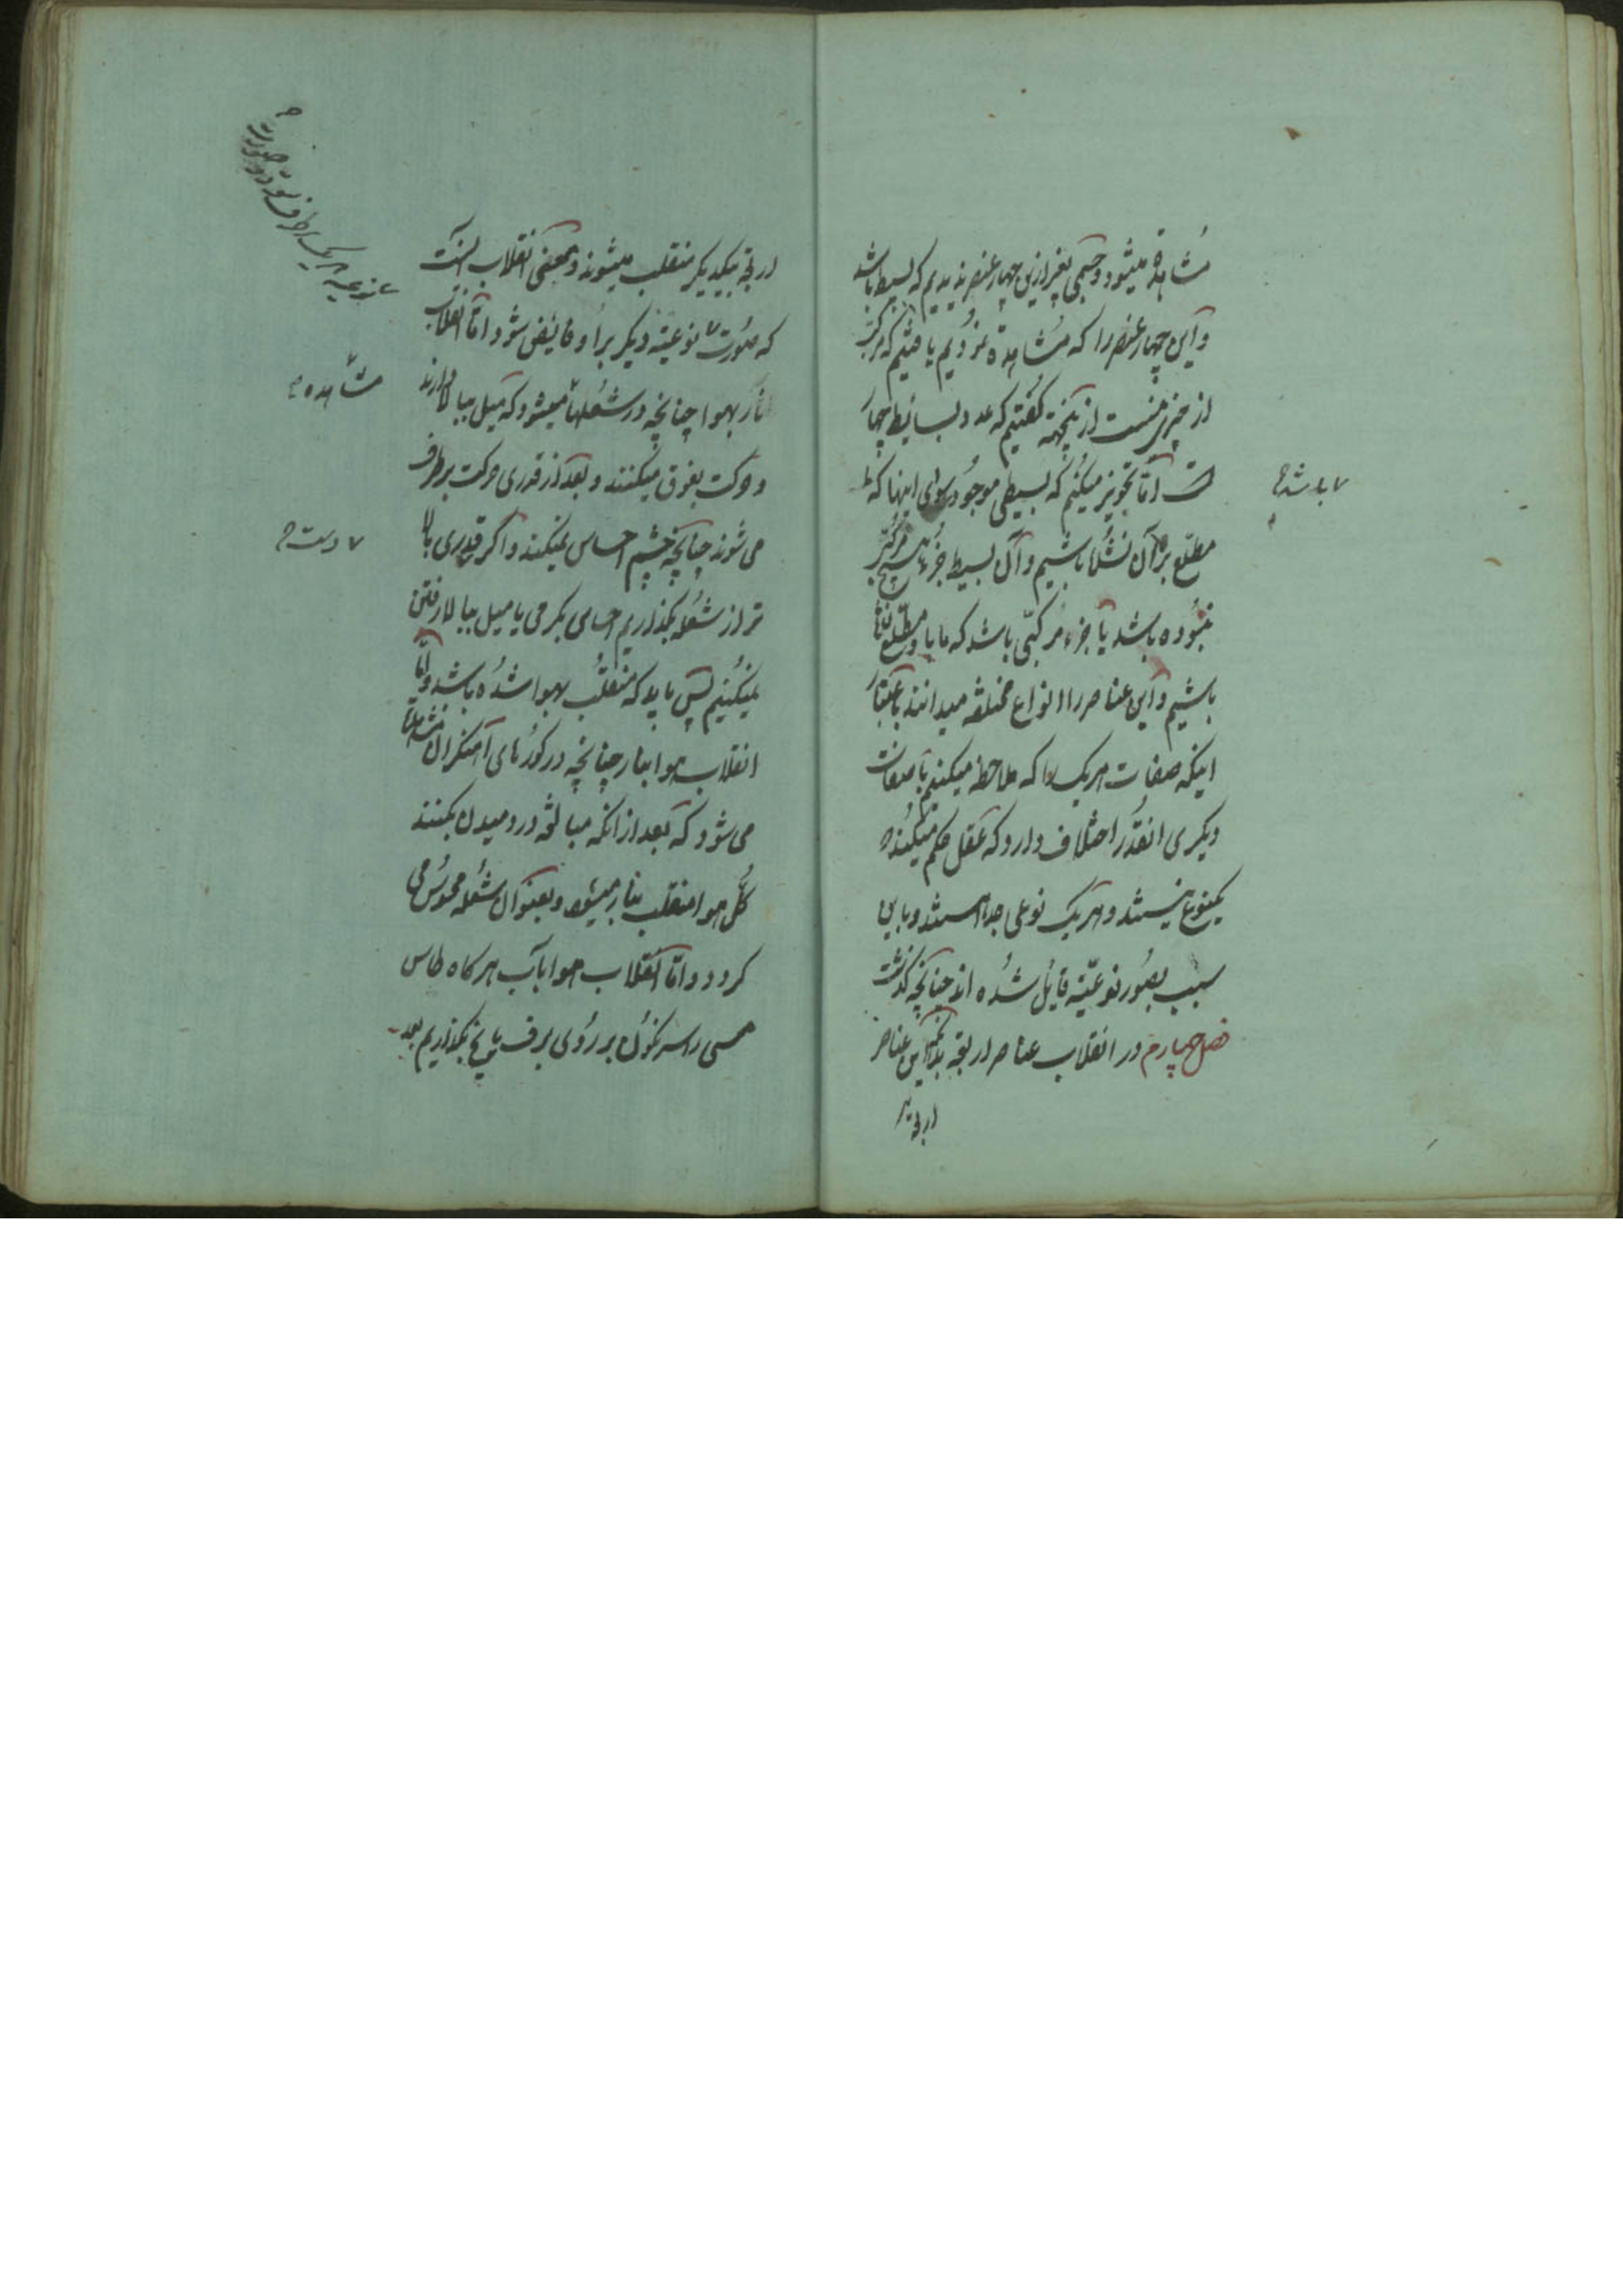 مشاهده میشود و جسمی بغیر ازین چهار عنصر ندیدیم که بسیط باشد
و این چهار عنصر را که مشاهده نمودیم یافتیم که مرکب
از چیزی نیست ازینجهة کفتیم که عدد بسایط چهار
است امّا تجویز میکنیم که بسیطی موجود سوای اینها که
مطلع بر آن نشده باشیم و آن بسیط جزء هیچ مرکب
نبوده باشد یا جزء مرکبی باشد که ما باو مطلع نشده
باشیم و این عناصر را انواع مختلفه میدانند باعتبار
اینکه صفات هر یک را که ملاحظه میکنیم با صفات
دیکری انقدر اختلاف دارد که عقل حکم میکند که
یکنوع نیستند و هر یک نوعی جدا هستند و باین
سبب بصور نوعیّه قایل شده اند چنانچه کذشت
فصل چهارم در انقلاب عناصر اربعه بدانکه این عناصر
اربعه
باشد
اربعه بیکدیکر منقلب میشوند و معنی انقلاب اینست
که صورت نوعیّه دیکر بر او فایض شود امّا انقلاب
نار بهوا چنانچه در شعلها میشود که میل ببالا دارند
و حرکت بفوق میکنند و بعد از قدری حرکت برطرف
می شوند چنانچه چشم احساس نمیکند و اکر قدری بالا
تر از شعله بکذاریم احساس بکرمی یا میل ببالا رفتن
نمیکنیم پس باید که منقلب بهوا شده باشد و امّا
انقلاب هوا بنار چنانچه در کورهای آهنکران مشاهده
می شود که بعد از انکه مبالغه در دمیدن بکنند
کل هوا منقلب بنار میشود و بعنوان شعله محسوس می
کردد و امّا انقلاب هوا بآب هر کاه طاس
مسی را سرنکون بر روی برف یا یخ بکذاریم بعد
نوعیه از یک
مشاهده
دست